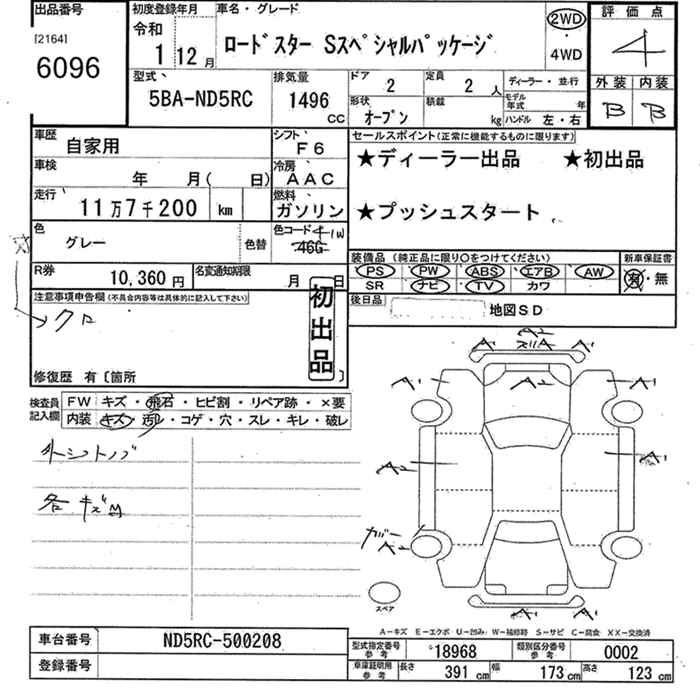 出品番号
[2164]
6096
初度登録年月
令和
1 12月
車名・グレード
ロードスター Sスペシャルパッケージ
2WD
・
4WD
評価点
4
外装 内装
B B
型式
5BA-ND5RC
排気量
1496 CC
ドア 2
定員 2人
形状 オープン
積載 kg
ディーラー・並行
モデル年式 年
ハンドル 左・右
車歴 自家用
シフト F6
車検 年 月( 日)
冷房 AAC
走行 11万7千200 km
燃料 ガソリン
色 グレー
色替
色コード 41W
46G
R券 10,360円
名変通知期限 月 日
セールスポイント(正常に機能するものに限ります)
★ディーラー出品 ★初出品
★プッシュスタート
装備品(純正品に限り○をつけてください)
PS PW ABS エアB AW
SR ナビ TV カワ
新車保証書
有・無
後日品 地図SD
注意事項申告欄(不具合内容等は具体的に記入して下さい)
→クロ
初出品
修復歴 有〔箇所
検査員記入欄
FW キズ・飛石・ヒビ割・リペア跡・×要
内装 キズ・汚レ・コゲ・穴・スレ・キレ・破レ
外シフトノブ
各キズM
A2
A1 ズリA A1
A1 A1
A2 A1
カバー
A2
A1 A1
スペア
A-キズ E-エクボ U-凹み W-補修跡 S-サビ C-腐食 XX-交換済
車台番号 ND5RC-500208
登録番号
型式指定番号 参考 18968
類別区分番号 参考 0002
車庫証明用 参考 長さ 391cm 幅 173cm 高さ 123cm